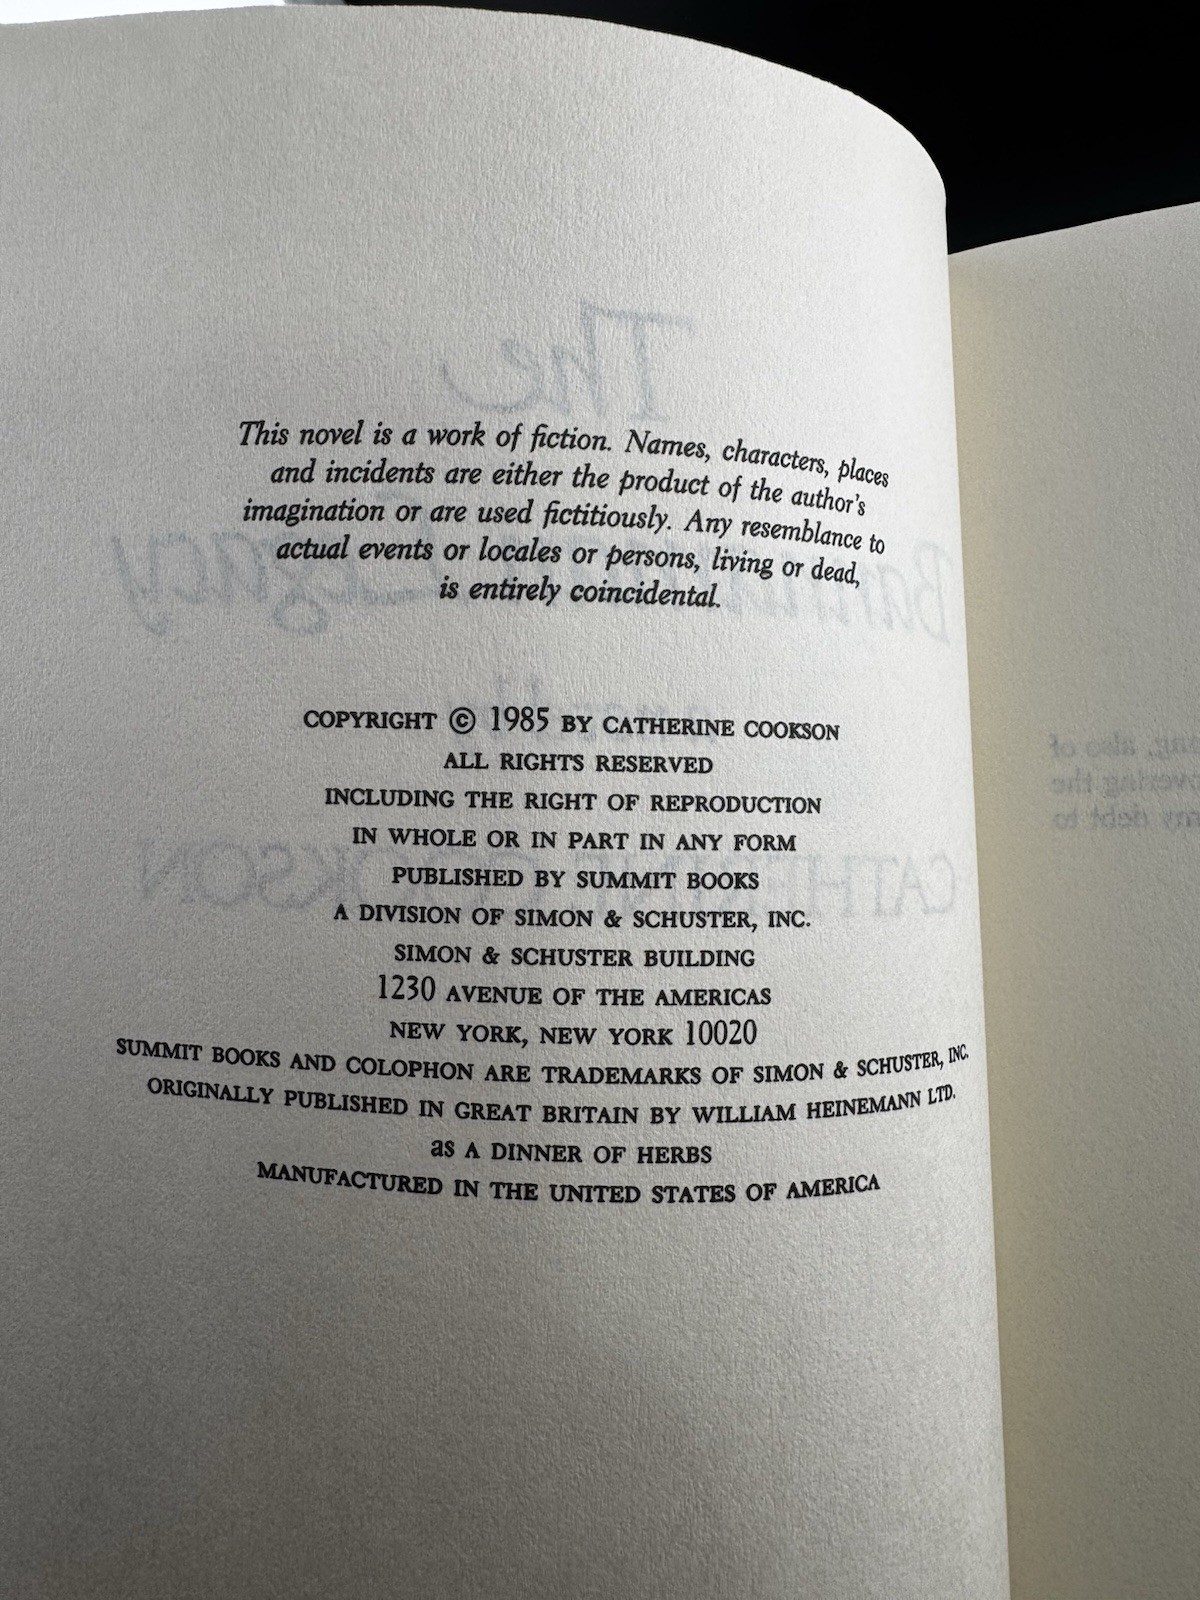 The
This novel is a work of fiction. Names, characters, places
and incidents are either the product of the author's
imagination or are used fictitiously. Any resemblance to
actual events or locales or persons, living or dead,
is entirely coincidental.
COPYRIGHT © 1985 BY CATHERINE COOKSON
ALL RIGHTS RESERVED
INCLUDING THE RIGHT OF REPRODUCTION
IN WHOLE OR IN PART IN ANY FORM
PUBLISHED BY SUMMIT BOOKS
A DIVISION OF SIMON & SCHUSTER, INC.
SIMON & SCHUSTER BUILDING
1230 AVENUE OF THE AMERICAS
NEW YORK, NEW YORK 10020
SUMMIT BOOKS AND COLOPHON ARE TRADEMARKS OF SIMON & SCHUSTER, INC.
ORIGINALLY PUBLISHED IN GREAT BRITAIN BY WILLIAM HEINEMANN LTD.
as A DINNER OF HERBS
MANUFACTURED IN THE UNITED STATES OF AMERICA
also of
the
my debt to